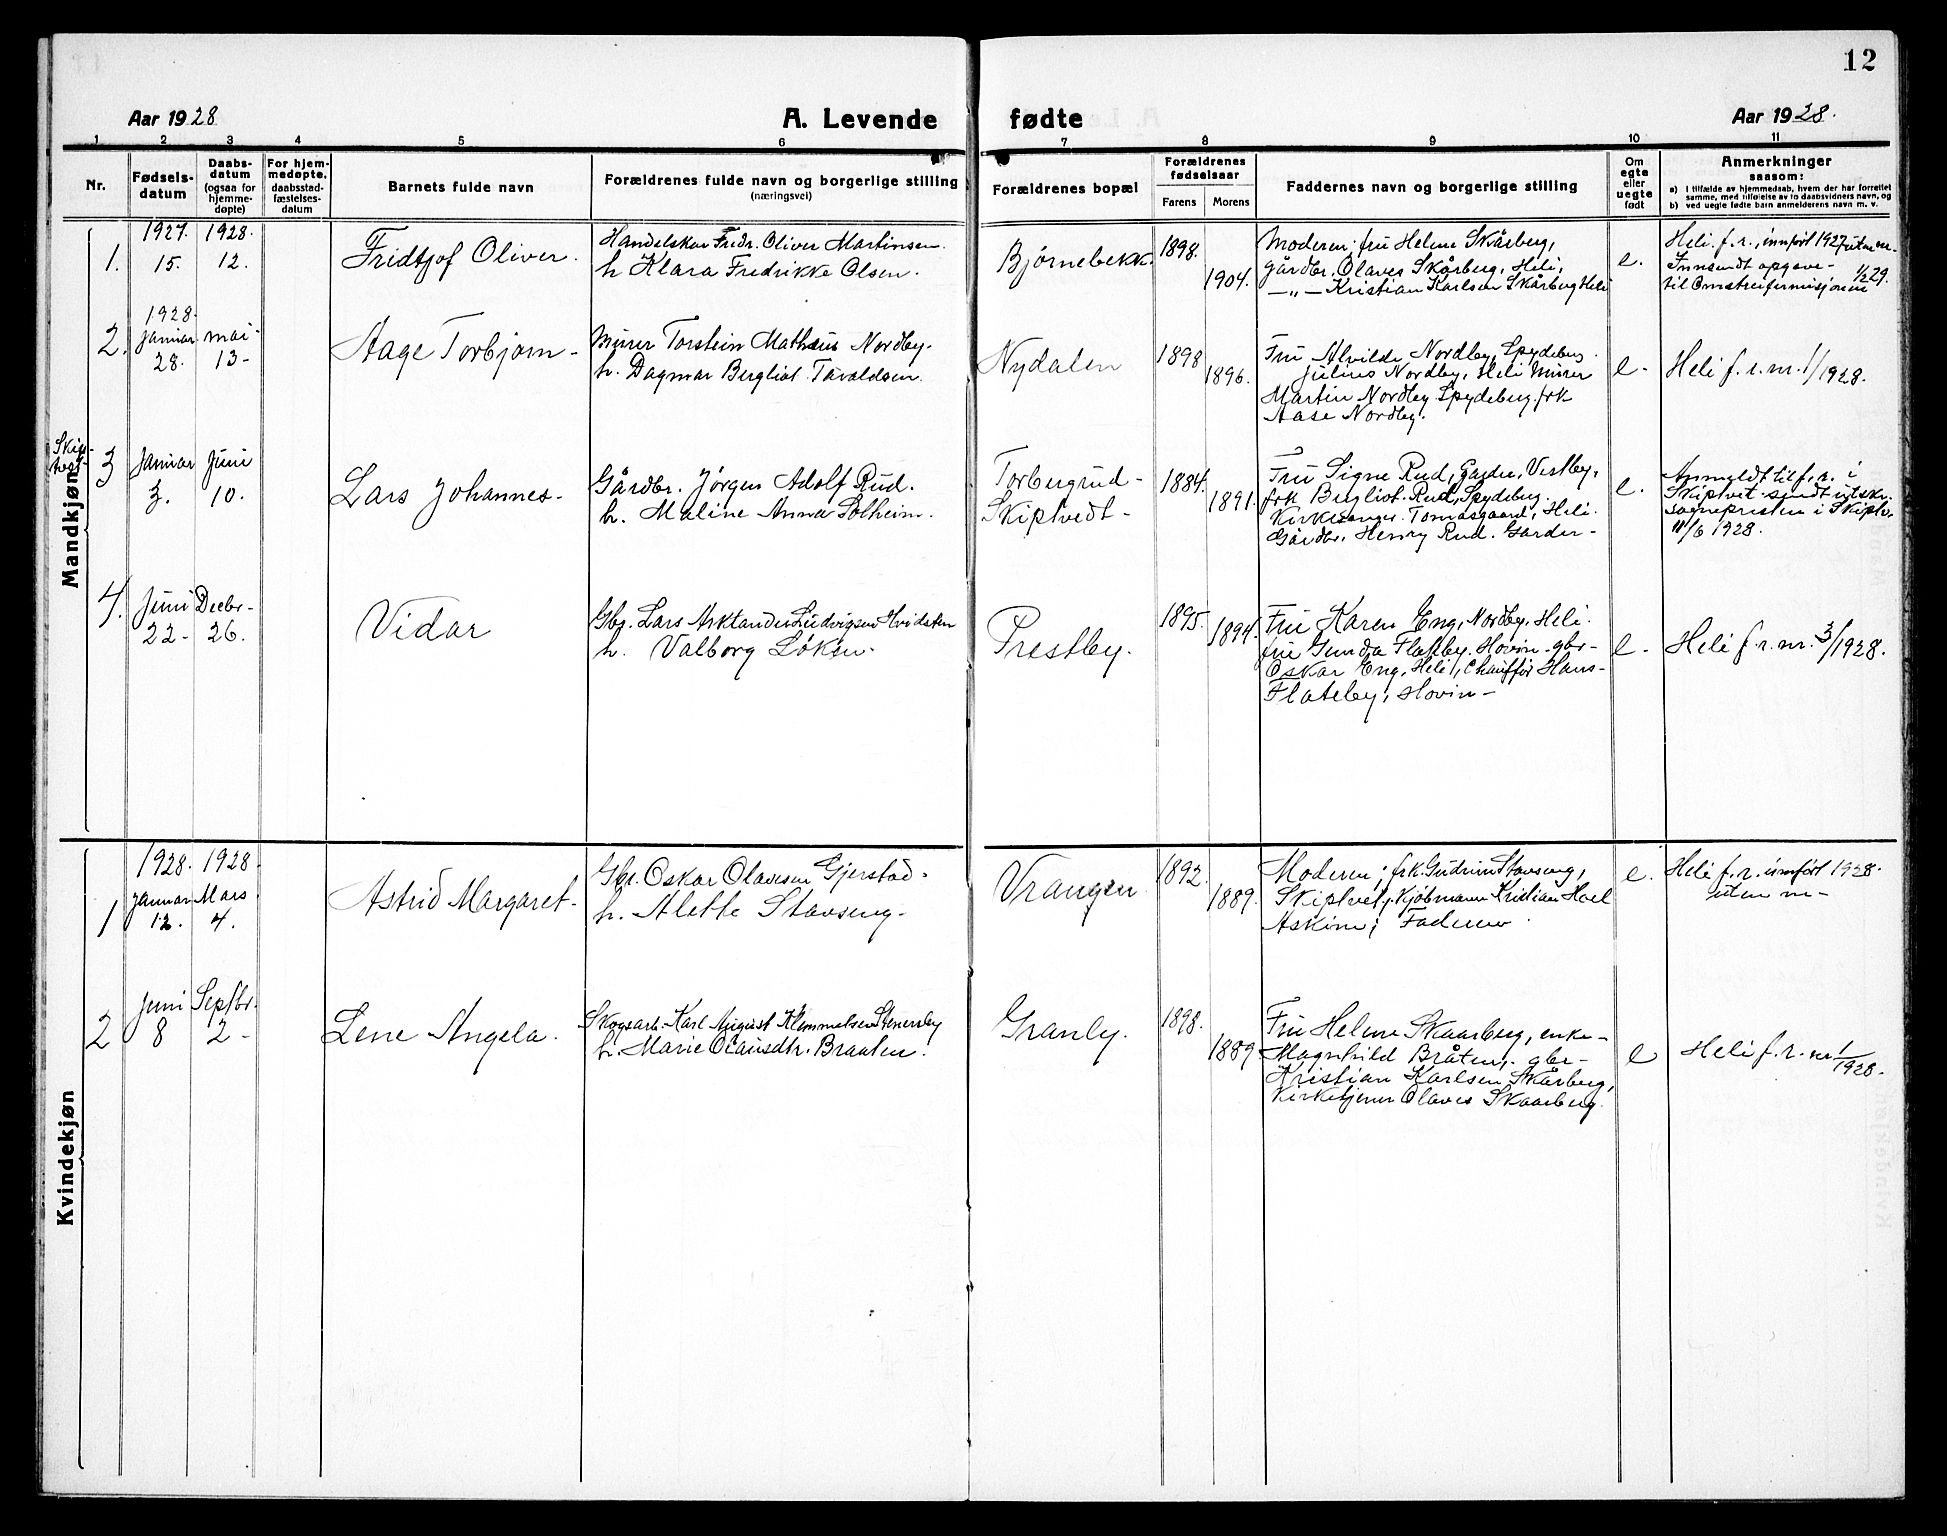 12
Aar 1928 A. Levende fødte Aar 1928.
1 2 3 4 5 6 7 8 9 10 11
Nr.
Fødsels-
datum
Daabs-
datum
(ogsaa for
hjemme-
døpte)
For hjem-
medøpte,
daabsstad-
fæstelses-
datum
Barnets fulde navn
Forældrenes fulde navn og borgerlige stilling
(næringsvei)
Forældrenes bopæl
Forældrenes
fødselsaar
Farens Morens
Faddernes navn og borgerlige stilling
Om
egte
eller
uegte
født
Anmerkninger
saasom:
a) I tilfælde av hjemmedaab, hvem der har forrettet
samme, med tilføielse av to daabsvidners navn, og
b) ved uegte fødte barn anmelderens navn m. v.
Mandkjøn
1.
1927. 1928.
15. 12.
Fridtjof Oliver.
Handelskar Fredr. Oliver Martinsen.
h Klara Fredrikke Olsen.
Bjørnebekk.
1898.
1904.
Moderen. fru Helene Skårberg,
gårdbr. Olaves Skårberg, Heli,
—„— Kristian Karlsen Skårberg Heli
e.
Heli. f. r., innført 1927 uten nr.
Innsendt opgave-
til Omstreifermisjonen 1/2 29.
2.
1928.
Januar mai-
28. 13-
Aage Torbjørn -
Murer Torstein Mathæus Nordby.
h. Dagmar Bergliot Tavaldsen.
Nydalen
1898
1896.
Fru Alvilde Nordby, Spydeberg.
Julius Nordby, Heli Murer
Martin Nordby Spydeberg, frk
Aase Nordby.
e.
Heli f. r. nr. 1/1928.
3
Januar Juni
3. 10.
Lars Johannes-
Gårdbr. Jørgen Adolf Rud.
h. Maline Anna Solheim.
Torbergrud-
Skiptvedt-
1884.
1891.
Fru Signe Rud, Vestby,
frk Bergliot Rud, Spydeberg.
Kirkesanger Tomasgaard, Heli.
Gårdbr. Henry Rud. Garder-
e.
Anmeldt til f. r. i
Skiptvet. sendt utskr.
sognepresten i Skiptv.
11/6 1928.
4.
Juni Decbr-
22- 26.
Vidar
Gbr. Lars Ludvigsen Hvidsten
h. Valborg Løken-
Prestby.
1895.
1894.
Fru Karen Eng, Nordby, Heli.
fru Gunda Flateby. Hovin. gbr-
Oskar Eng, Heli, Chauffør Hans-
Flateby, Hovin-
e-
Heli f. r. nr. 3/1928.
Kvindekjøn
1
1928. 1928.
Januar Mars
12. 4.
Astrid Margaret-
Gbr. Oskar Olavesen Gjerstad-
h. Alette Stavseng-
Vrangen
1892.
1889.
Moderen; frk. Gudrun Stavseng,
Skiptvet, Kjøbmann Kristian Hoel
Askim; Faderen
e.
Heli f. r. innført 1928.
uten nr-
2
Juni Septbr.
8 2-
Lene Angela.
Skogsarb. Karl August Klemmetsen Stenersby
h. Marie Olausdtr. Braaten.
Granby.
1898.
1889
Fru Helene Skaarberg, enke-
Magnhild Bråten, gbr-
Kristian Karlsen Skårberg,
Kirketjener Olaves Skaarberg.
e
Heli f. r. nr 1/1928.